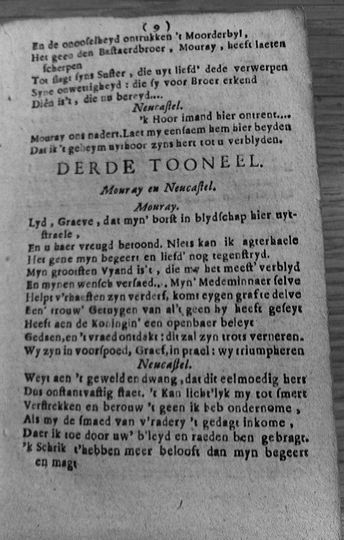 ( 9 )
En de onooselheyd ontrukken 't Moorderbyl,
Het geen den Bastaerdbroer, Mouray, heeft laeten
scherpen
Tot slagt syns Suster, die uyt liefd' dede verwerpen
Syne onwettigheyd : die sy voor Broer erkend
Dien is't, die nu bereyd....
Neucastel.
'k Hoor imand hier ontrent....
Mouray ons nadert. Laet my eensaem hem hier beyden
Dat ik 't geheym uythoor zyns hert tot u verblyden.
DERDE TOONEEL.
Mouray en Neucastel.
Mouray.
Lyd, Graeve, dat myn' borst in blydschap hier uyt-
straele,
En u haer vreugd betoond. Niets kan ik agterhaele
Het gene myn begeert en liefd' nog tegenstryd.
Myn grootsten Vyand is't, die my het meest' verblyd
En mynen wensch versaed... Myn' Medeminnaer selve
Helpt v'rhaesten zyn verderf, komt eygen graf te delve
Een' trouw' Getuygen van al't geen hy heeft geseyt
Heeft aen de Koningin' een openbaer beleyt
Gedaen, en 't vraed ontdakt : dit zal zyn trots verneren.
Wy zyn in voorspoed, Graef, in prael : wy triumpheren
Neucastel.
Weyt aen 't geweld en dwang, dat dit eelmoedig hert
Dus onstantvastig staet. 't Kan licht'lyk my tot smert
Verstrekken en berouw 't geen ik heb ondernome,
Als my de smaed van v'radery 't gedagt inkome,
Daer ik toe door uw' b'leyd en raeden ben gebragt.
'k Schrik t'hebben meer belooft dan myn begeert
en magt